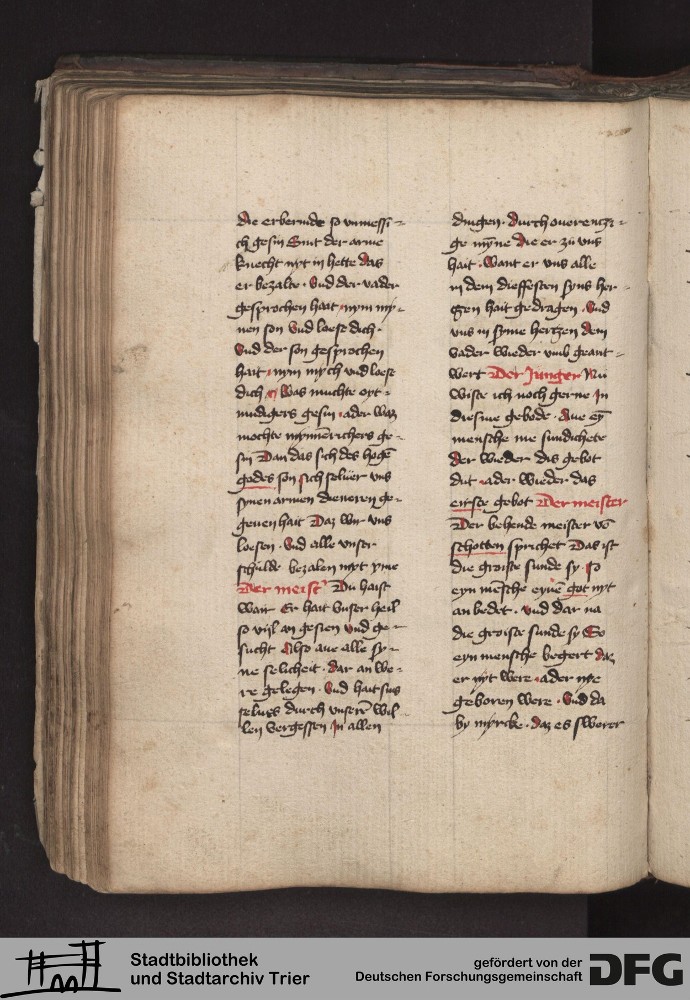 die erbermde so vnmessi-
ch gesin Smt der arme
knecht nyt in hette das
er bezalte. Vnd der vader
gesprochen hait nym my-
nen son Vnd loese dich.
Vnd der son gesprochen
hait nym mych vnd loese
dich Was muchte oyt-
mudigers gesin ader waz
mochte mynnērichers ge-
sin Dan das sich des hogē
godes son sich seluer vns
synen armen dieneren ge-
geuen hait Daz wir vns
loesen. Vnd alle vnser
schulde bezalen myt yme
Der meist' Du haist
wair Er hait vnser heil
so vijl an gesien vnd ge-
sucht Also aue alle sy-
ne selicheit. dar an we-
re gelegen. Vnd hait sins
selues durch vnserē wil
len vergessen In allen
dingen. Durch ouerentzi-
ge mȳne Die er zü vns
hait. Want er vns alle
in dem dieffesten syns her-
tzen hait gedragen. Vnd
vns in syme hertzen dem
vader wieder vmb geant-
wert Der Junger Nü
wiste ich noch gerne In
diesme gebode. Aue eȳ
mensche me sundichete
der wieder dis gebot
dut. ader wieder das
eirste gebot Der meister
Der behende meister vō
schotten sprichet Das ist
die groiste sunde sy. so
eyn mēsche eynē got nyt
an bedet. Vnd dar na
die groiste sunde sy So
eyn mensche begert daz
er nyt were ader nye
geboren were. Vnd da
by myrcke. daz es swerer
Stadtbibliothek
und Stadtarchiv Trier
gefördert von der
Deutschen Forschungsgemeinschaft
DFG